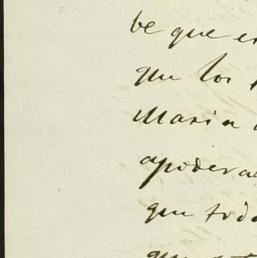 be que e
que los
Maria
apodera
que todo
que